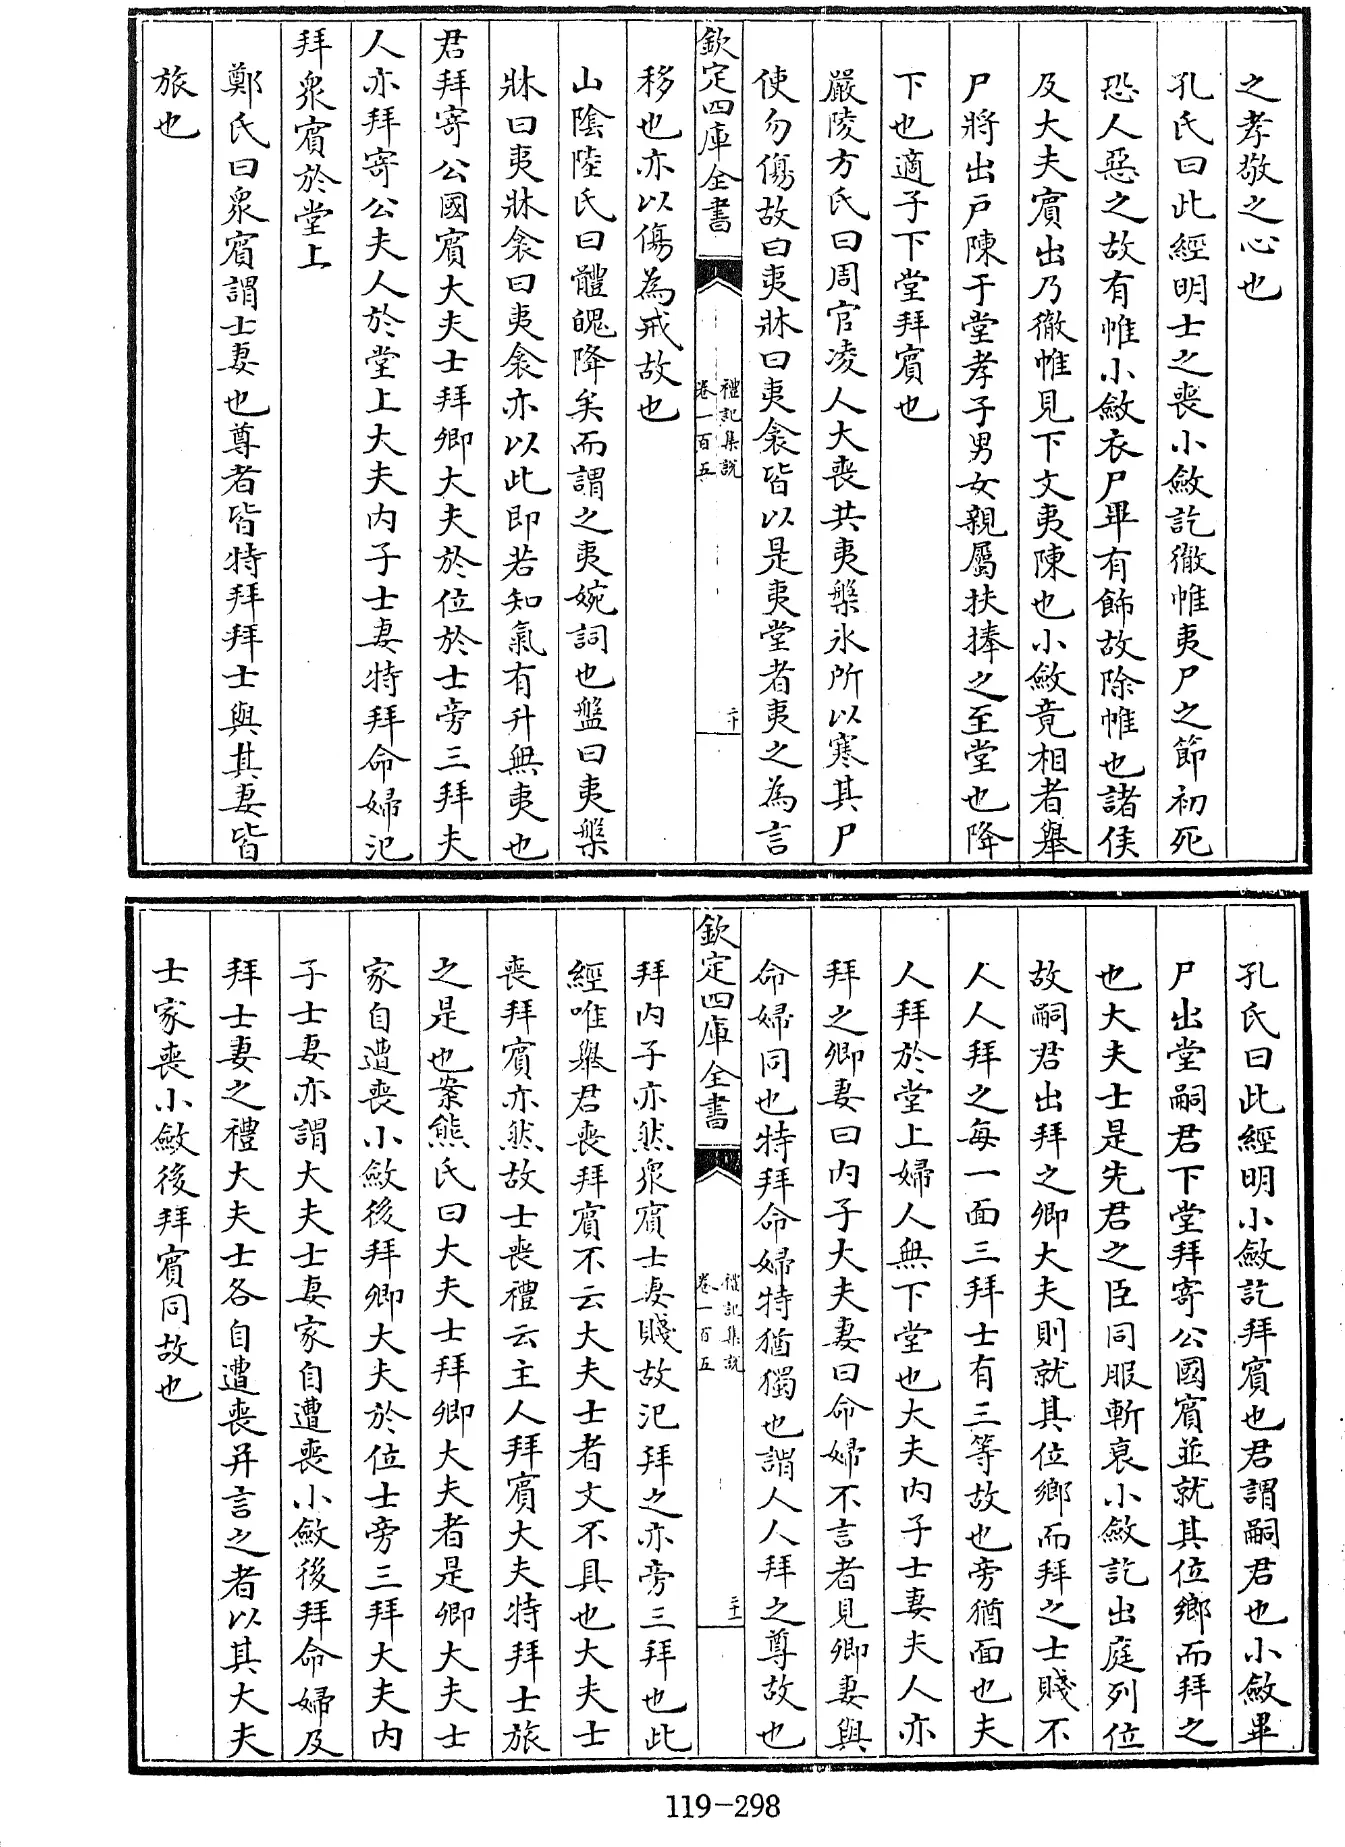 之孝敬之心也
孔氏曰此經明士之喪小斂訖徹帷夷尸之節初死
恐人惡之故有帷小斂衣尸畢有飾故除帷也諸侯
及大夫賓出乃徹帷見下文夷陳也小斂竟相者舉
尸將出戸陳于堂孝子男女親屬扶捧之至堂也降
下也適子下堂拜賓也
嚴陵方氏曰周官凌人大喪共夷槃氷所以寒其尸
使勿傷故曰夷牀曰夷衾皆以是夷堂者夷之為言
欽定四庫全書
禮記集說
卷一百五
二十
移也亦以傷為戒故也
山陰陸氏曰體魄降矣而謂之夷婉詞也盤曰夷槃
牀曰夷牀衾曰夷衾亦以此即若知氣有升無夷也
君拜寄公國賓大夫士拜卿大夫於位於士旁三拜夫
人亦拜寄公夫人於堂上大夫内子士妻特拜命婦氾
拜衆賓於堂上
鄭氏曰衆賓謂士妻也尊者皆特拜拜士與其妻皆
旅也
孔氏曰此經明小斂訖拜賓也君謂嗣君也小斂畢
尸出堂嗣君下堂拜寄公國賓並就其位鄉而拜之
也大夫士是先君之臣同服斬衰小斂訖出庭列位
故嗣君出拜之卿大夫則就其位鄉而拜之士賤不
人人拜之每一面三拜士有三等故也旁猶面也夫
人拜於堂上婦人無下堂也大夫内子士妻夫人亦
拜之卿妻曰内子大夫妻曰命婦不言者見卿妻與
命婦同也特拜命婦特猶獨也謂人人拜之尊故也
欽定四庫全書
禮記集說
卷一百五
二十一
拜内子亦然衆賓士妻賤故氾拜之亦旁三拜也此
經唯舉君喪拜賓不云大夫士者文不具也大夫士
喪拜賓亦然故士喪禮云主人拜賓大夫特拜士旅
之是也案熊氏曰大夫士拜卿大夫者是卿大夫士
家自遭喪小斂後拜卿大夫於位士旁三拜大夫内
子士妻亦謂大夫士妻家自遭喪小斂後拜命婦及
拜士妻之禮大夫士各自遭喪并言之者以其大夫
士家喪小斂後拜賓同故也
119-298